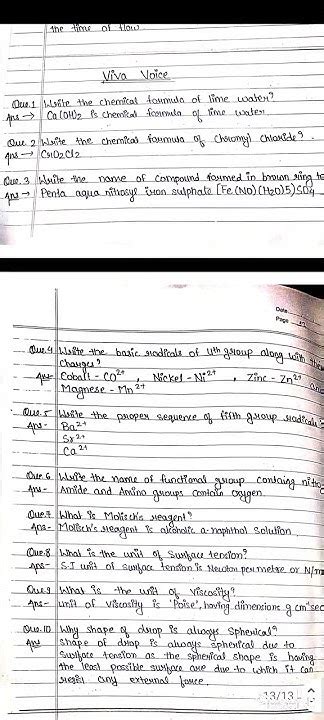 the time of flow.
Viva Voice
Que.1 Write the chemical formula of lime water?
Ans → Ca(OH)2 is chemical formula of lime water
Que.2 Write the chemical formula of Chromyl chloride?
Ans → CrO2Cl2
Que.3 Write the name of compound formed in brown ring te
Ans → Penta aqua nitrosyl iron sulphate [Fe(NO)(H2O)5]SO4
Date
Page
Que.4 Write the basic radicals of 4th group along with their
Charges?
Ans- Cobalt - CO2+, Nickel - Ni2+, Zinc - Zn2+ and
Magnese - Mn2+
Que.5 Write the proper sequence of fifth group radicals
Ans- Ba2+
Sr2+
Ca2+
Que.6 Write the name of functional group containg nitro
Ans- Amide and Amino groups contain oxygen.
Que.7 What is Molisch's reagent?
Ans- Molisch's reagent is alcoholic α-naphthol solution.
Que.8 What is the unit of Surface tension?
Ans- S.I unit of surface tension is Newton per metre or N/m
Que.9 What is the unit of Viscosity?
Ans- unit of viscosity is 'Poise', having dimensions g cm-1 sec
Que.10 Why shape of drop is always spherical?
Ans Shape of drop is always spherical due to
Surface tension as the spherical shape is having
the least possible surface are due to which it can
resist any external force.
13/13